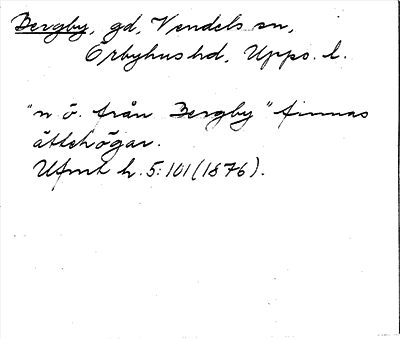 Bergby, gd, Vendels sn,
Örbyhus hd, Upps. l.
"n ö. från Bergby" finnas
ättehögar.
Ufmt h. 5:101 (1876).